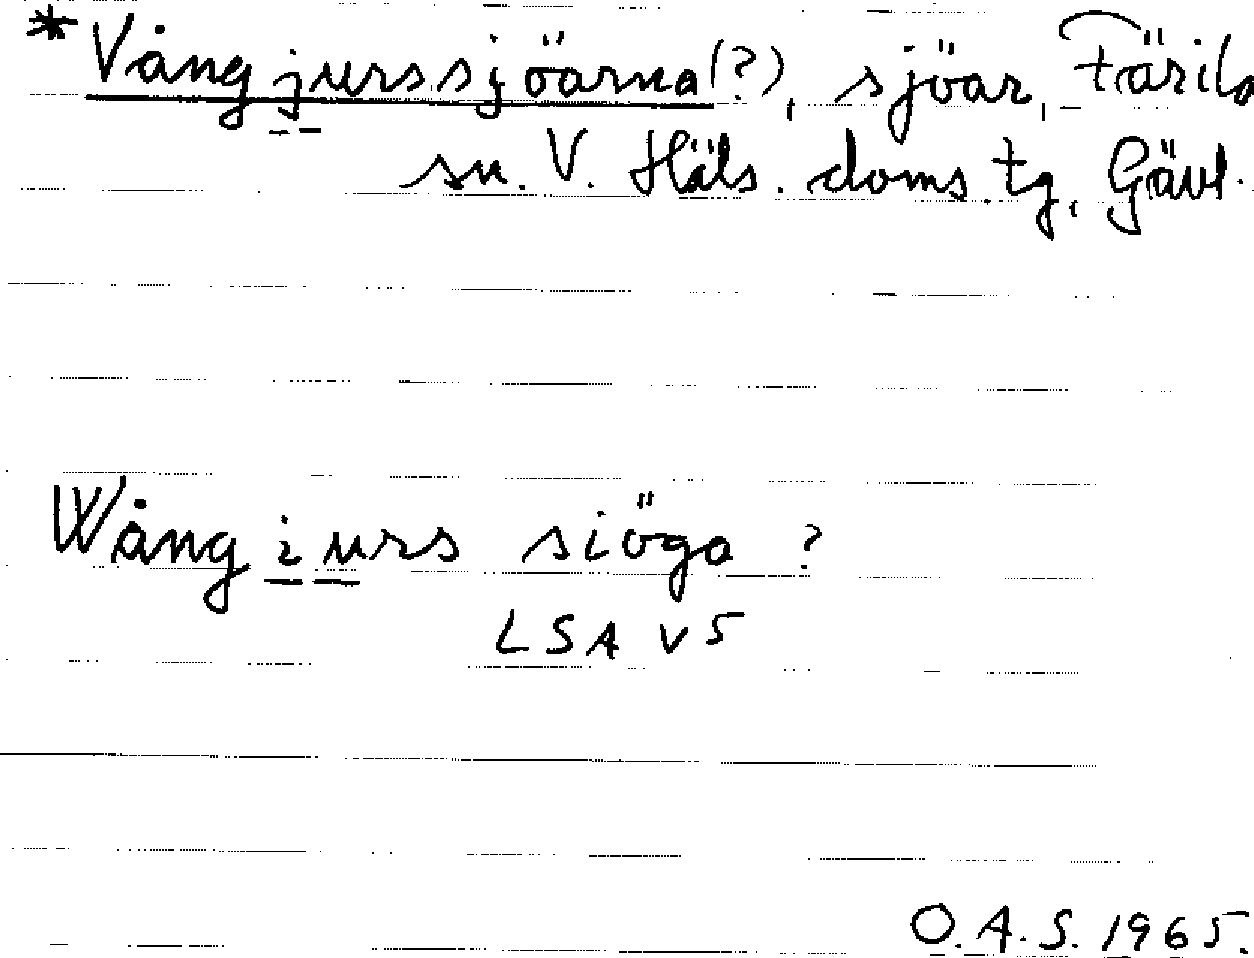 *Vångjurssjöarna(?), sjöar, Färila
sn. V. Häls. doms. tg, Gävl.
Wång iurs siöga ?
LSA V5
O.A.S. 1965.